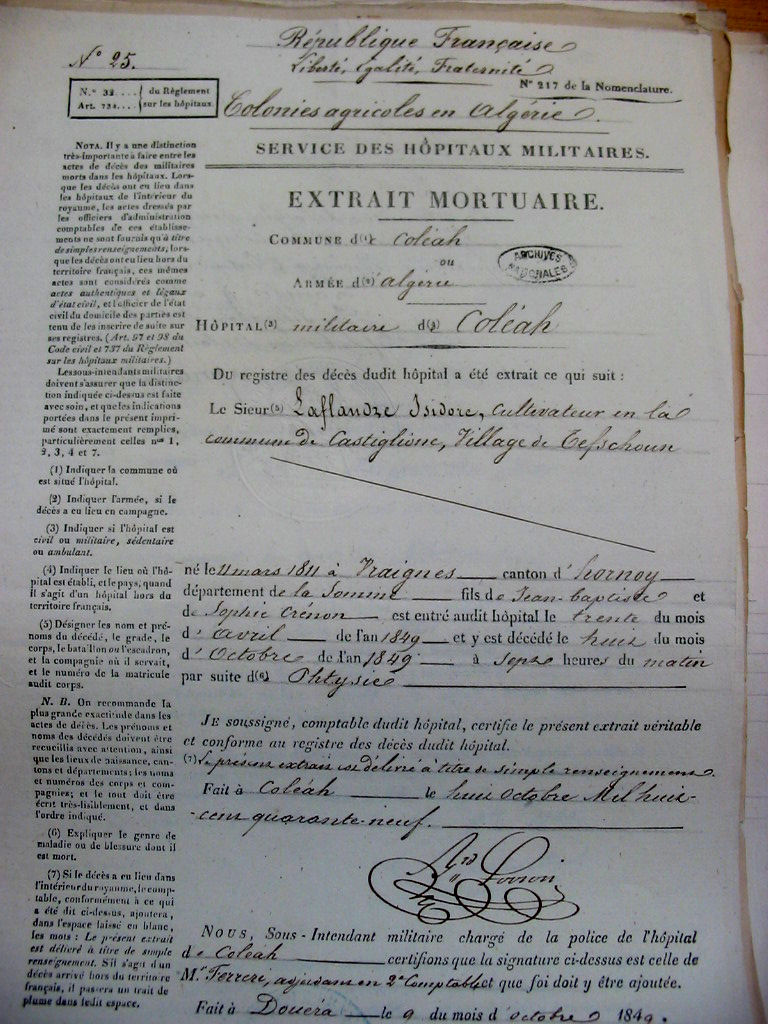 N° 25.
République Française
Liberté, Egalité, Fraternité
N° 217 de la Nomenclature.
N.° 32.... du Règlement
Art. 734.... sur les hôpitaux.
Colonies agricoles en Algérie.
SERVICE DES HÔPITAUX MILITAIRES.
EXTRAIT MORTUAIRE.
COMMUNE d(1) Coléah
ou
ARMÉE d(2) algérie
ARCHIVES NATIONALES
HÔPITAL(3) militaire d(4) Coléah
Du registre des décès dudit hôpital a été extrait ce qui suit :
Le Sieur(5) Laflandze Isidore, cultivateur en la
commune de Castiglione, Village de Tefschoun
né le 4 mars 1811 à Vraignes canton d'hornoy
département de la Somme fils de Jean-Baptiste et
de Sophie Crénon est entré audit hôpital le trente du mois
d'avril de l'an 1849 et y est décédé le huit du mois
d'Octobre de l'an 1849 à Sept heures du matin
par suite d(6) Phtysie
JE soussigné, comptable dudit hôpital, certifie le présent extrait véritable
et conforme au registre des décès dudit hôpital.
(7) Le présent extrait est délivré à titre de simple renseignement.
Fait à Coléah le huit Octobre Mil huit-
-cent quarante-neuf.
NOUS, Sous-Intendant militaire chargé de la police de l'hôpital
de Coléah certifions que la signature ci-dessus est celle de
Mr Ferreri, adjudant en 2d Comptable et que foi doit y être ajoutée.
Fait à Douéra le 9 du mois d'octobre 1849.
NOTA. Il y a une distinction
très-importante à faire entre les
actes de décès des militaires
morts dans les hôpitaux. Lors-
que les décès ont eu lieu dans
les hôpitaux de l'intérieur du
royaume, les actes dressés par
les officiers d'administration
comptables de ces établisse-
ments ne sont fournis qu'à titre
de simples renseignements, lors-
que les décès ont eu lieu hors du
territoire français, ces mêmes
actes sont considérés comme
actes authentiques et légaux
d'état civil, et l'officier de l'état
civil du domicile des parties est
tenu de les inscrire de suite sur
ses registres. (Art. 97 et 98 du
Code civil et 737 du Règlement
sur les hôpitaux militaires.)
Les sous-intendants militaires
doivent s'assurer que la distinc-
tion indiquée ci-dessus est faite
avec soin, et que les indications
portées dans le présent impri-
mé sont exactement remplies,
particulièrement celles nos 1,
2, 3, 4 et 7.
(1) Indiquer la commune où
est situé l'hôpital.
(2) Indiquer l'armée, si le
décès a eu lieu en campagne.
(3) Indiquer si l'hôpital est
civil ou militaire, sédentaire
ou ambulant.
(4) Indiquer le lieu où l'hô-
pital est établi, et le pays, quand
il s'agit d'un hôpital hors du
territoire français.
(5) Désigner les nom et pré-
noms du décédé, le grade, le
corps, le bataillon ou l'escadron,
et la compagnie où il servait,
et le numéro de la matricule
audit corps.
N. B. On recommande la
plus grande exactitude dans les
actes de décès. Les prénoms et
noms des décédés doivent être
recueillis avec attention, ainsi
que les lieux de naissance, can-
tons et départements; les noms
et numéros des corps et com-
pagnies; et le tout doit être
écrit très-lisiblement, et dans
l'ordre indiqué.
(6) Expliquer le genre de
maladie ou de blessure dont il
est mort.
(7) Si le décès a eu lieu dans
l'intérieur du royaume, le comp-
table, conformément à ce qui
a été dit ci-dessus, ajoutera,
dans l'espace laissé en blanc,
les mots : Le présent extrait
est délivré à titre de simple
renseignement. S'il s'agit d'un
décès arrivé hors du territoire
français, il passera un trait de
plume dans ledit espace.